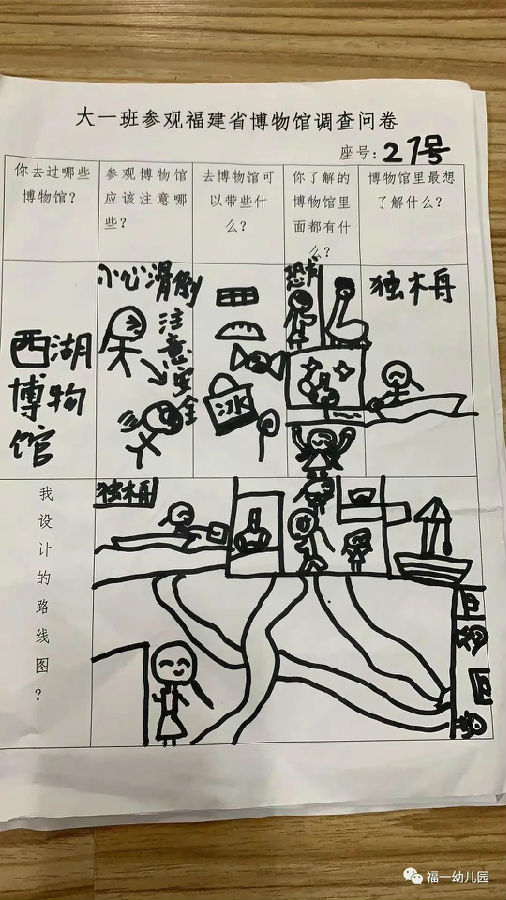 大一班参观福建省博物馆调查问卷
座号：27号
你去过哪些
博物馆？
参观博物馆
应该注意哪
些？
去博物馆可
以带些什
么？
你了解的
博物馆里
面都有什
么？
博物馆里最想
了解什么？
西湖
博物
馆
小心滑倒
注意安全
冰
恐龙
独木舟
我
设
计
的
路
线
图
？
独木舟
福一幼儿园